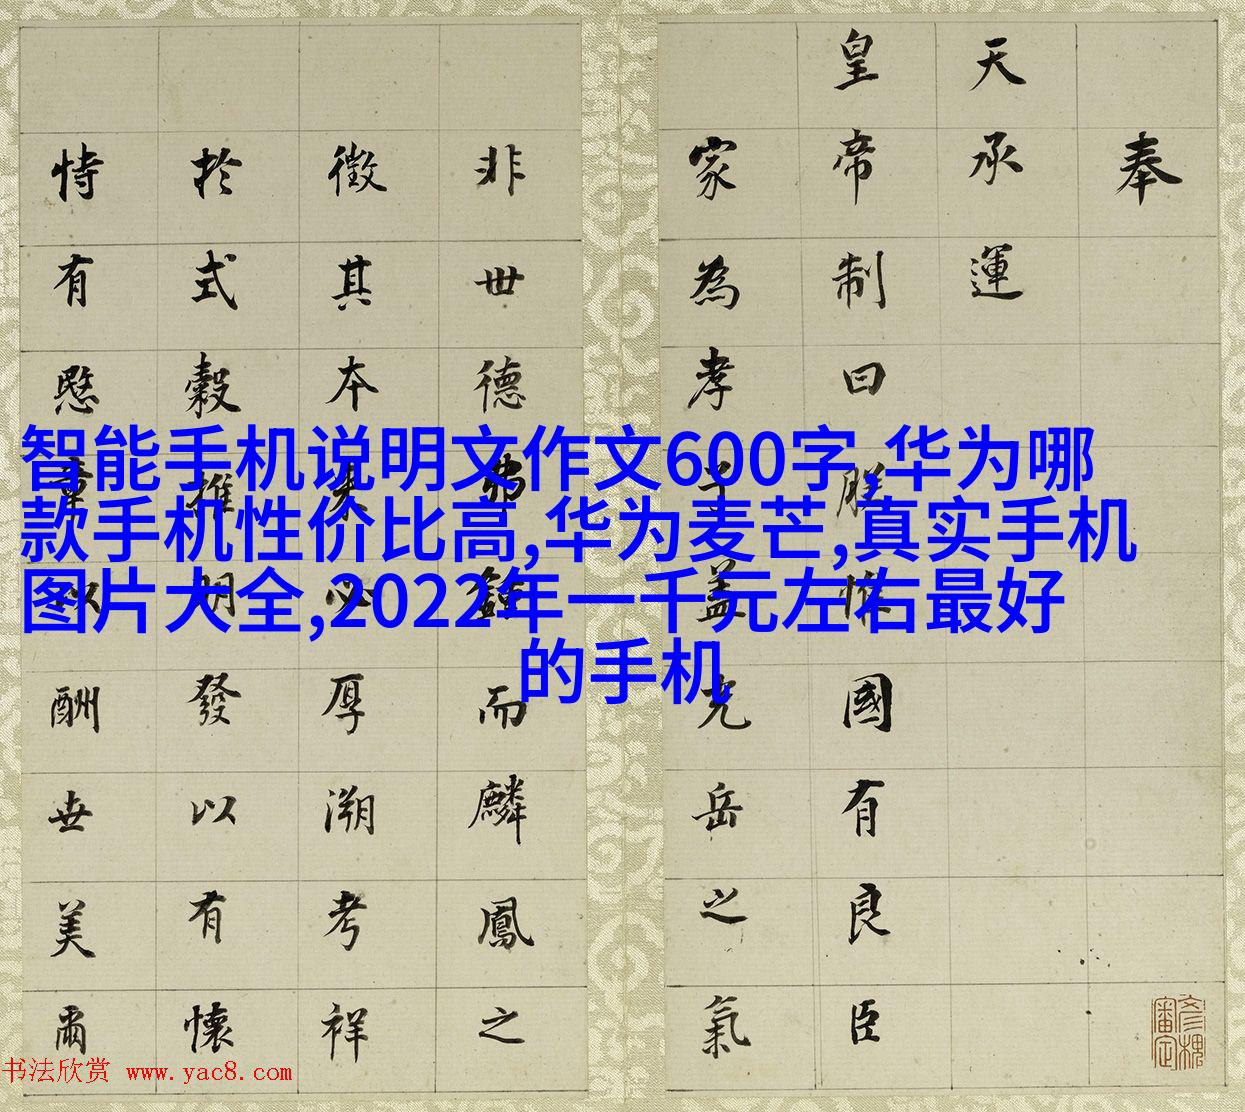 智能手机说明文作文600字,华为哪
款手机性价比高,华为麦芒,真实手机
图片大全,2022年一千元左右最好
的手机
奉
天承運
皇帝制曰朕惟國有良臣
家為孝子蓋光岳之氣
非世德弗鍾而麟鳳之
徵其本末必厚溯考祥
於式穀推明發以有懷
恃有愍以酬世美爾
彥槐
審定
书法欣赏 www.yac8.com